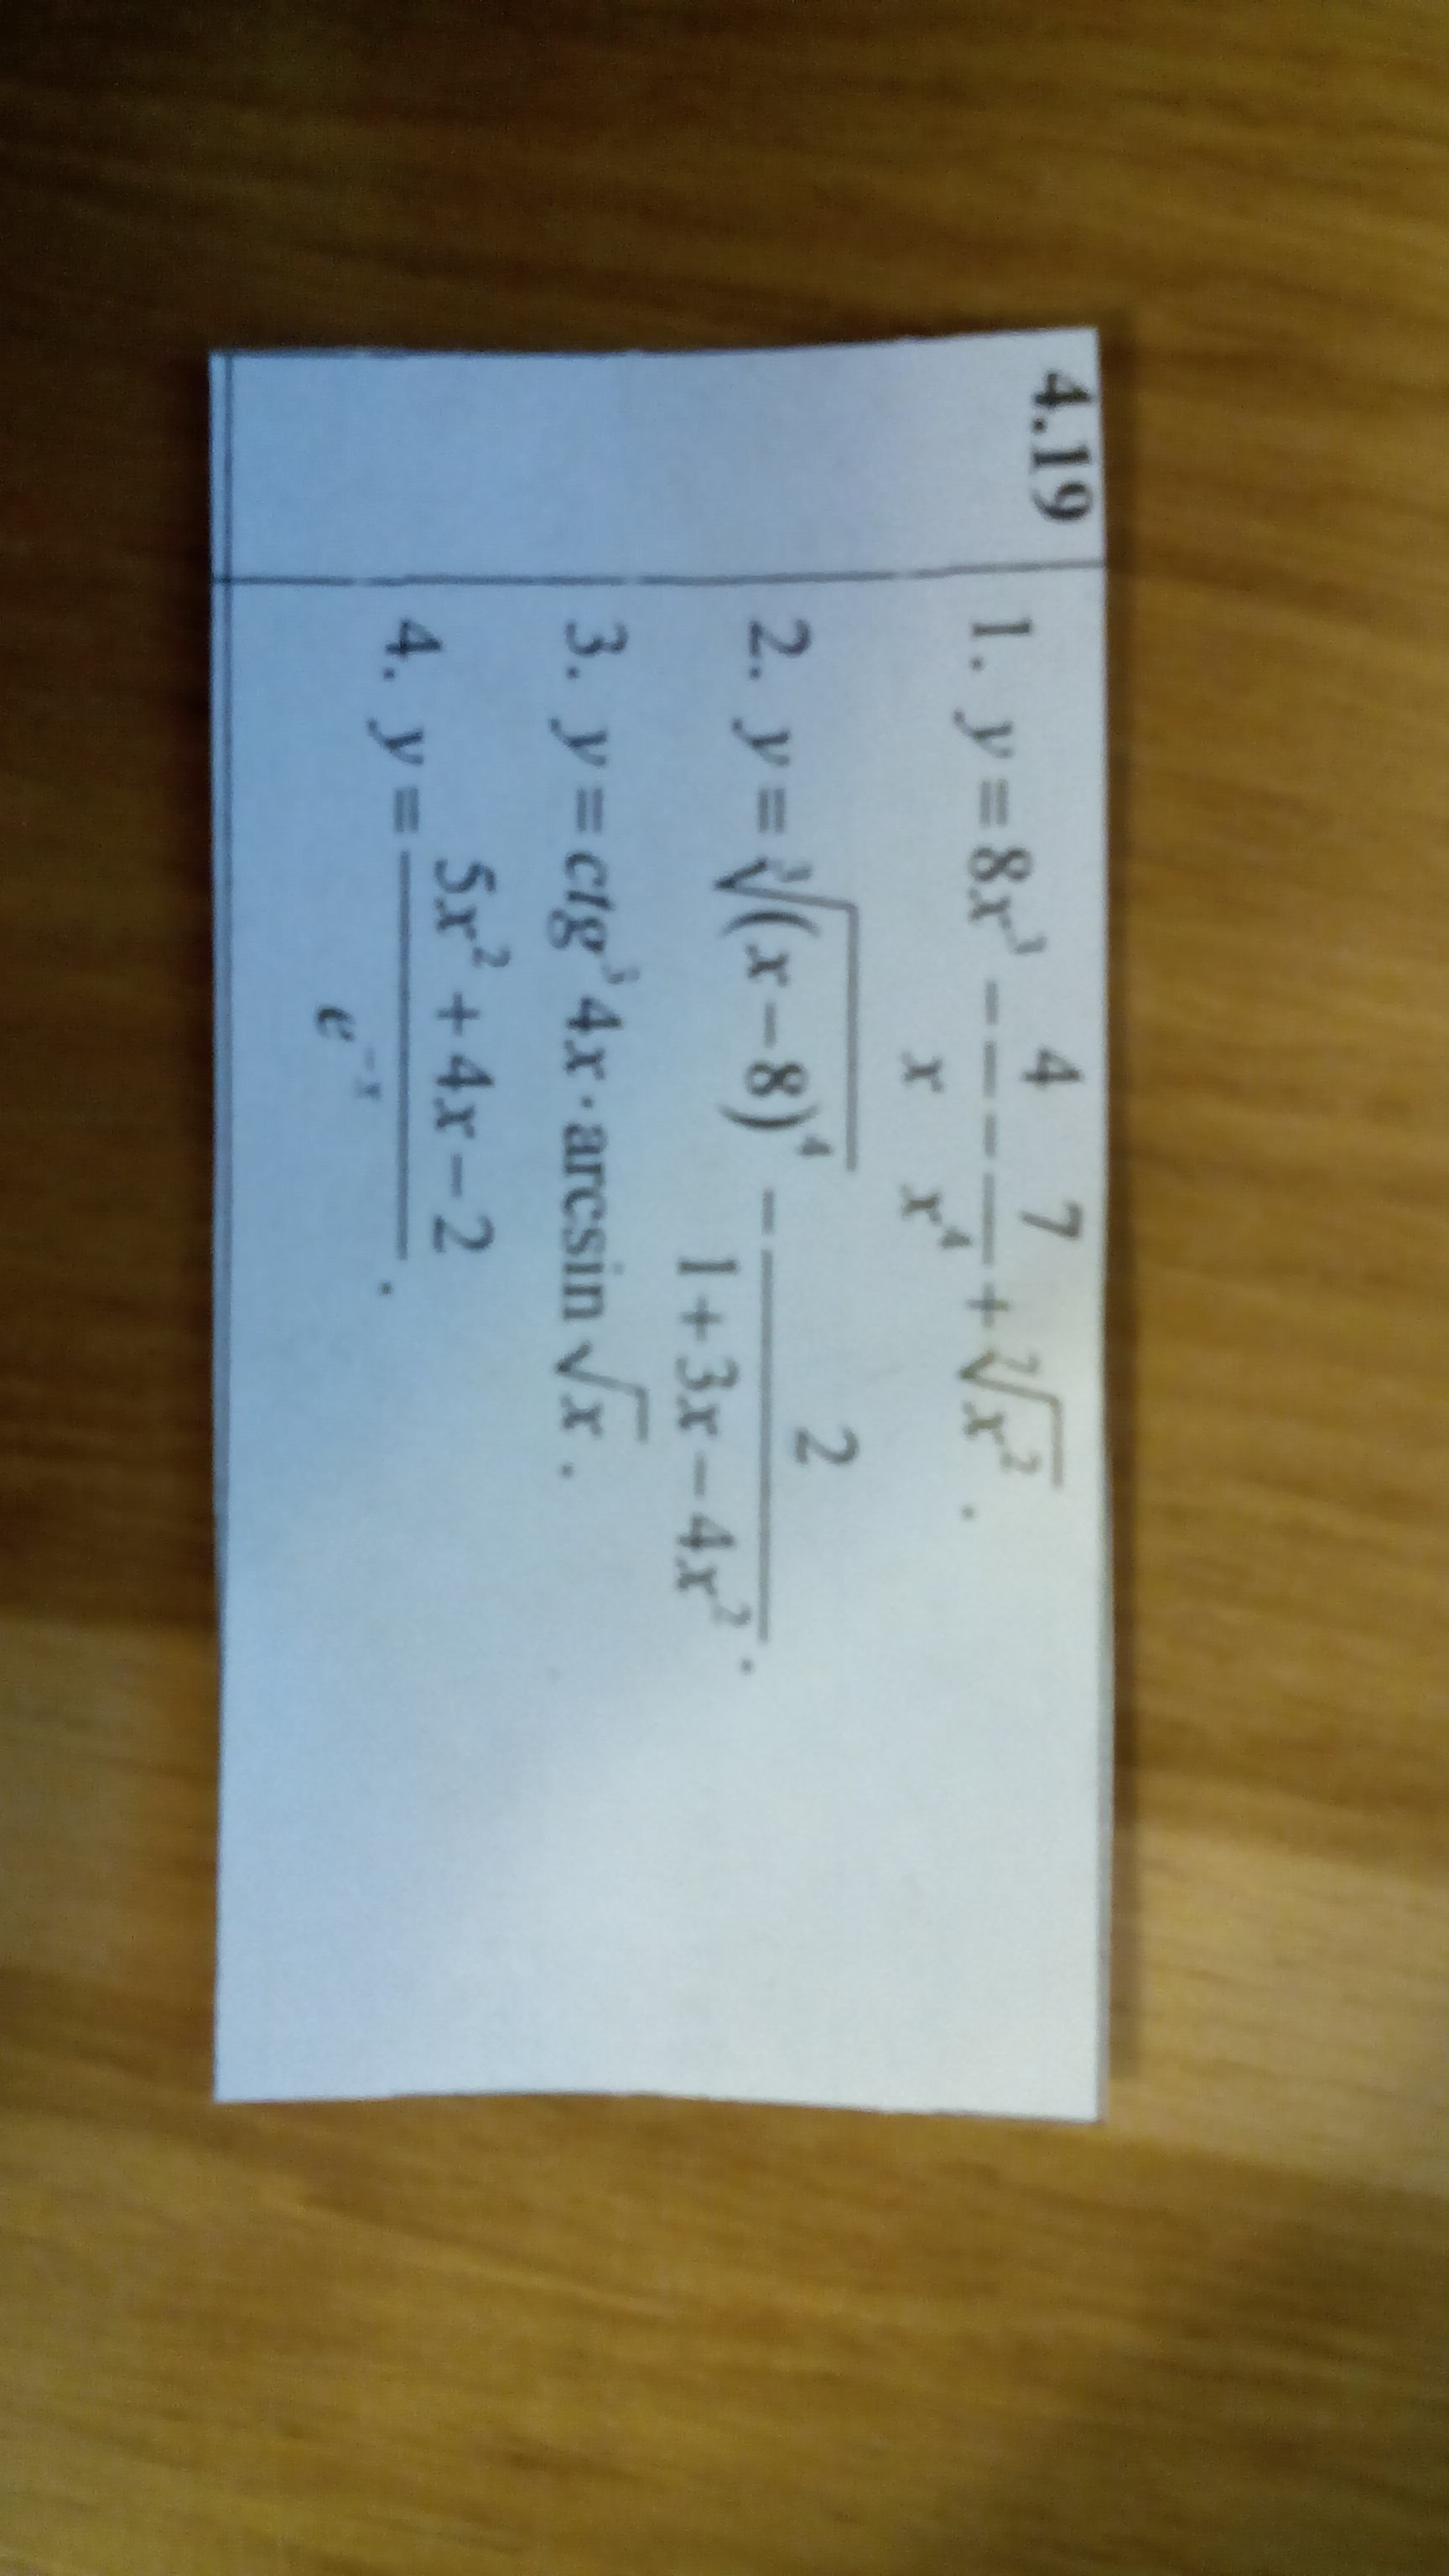 4.19
1. y = 8x³ − 4/x − 7/x⁴ + ⁷√(x²) .
2. y = ³√((x−8)⁴) − 2/(1+3x−4x²) .
3. y = ctg³4x · arcsin √x .
4. y = (5x² + 4x − 2)/e⁻ˣ .